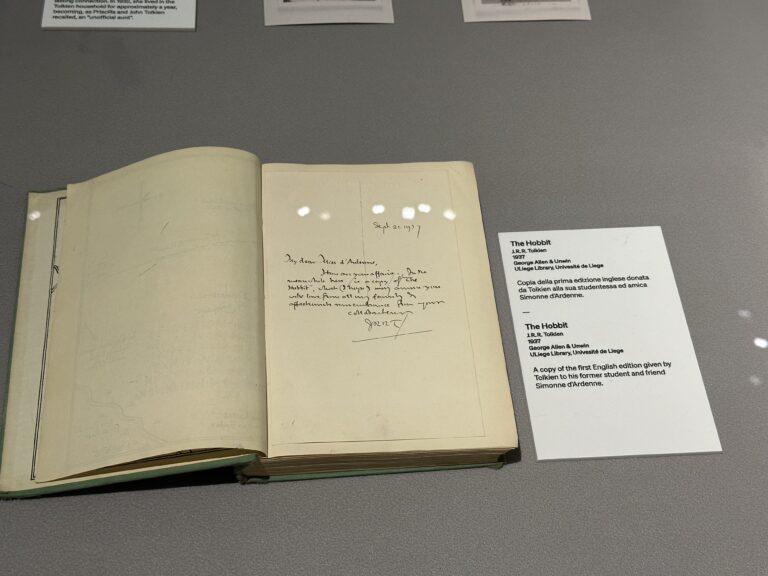 lasting connection. In 1932, she lived in the
Tolkien household for approximately a year,
becoming, as Priscilla and John Tolkien
recalled, an "unofficial aunt".
Sept 1937
My dear Miss d'Ardenne,
How are your affairs. In the
meanwhile here is a copy of 'The
Hobbit', which (I hope) may amuse you
with love from all my family &
affectionate remembrance from your
JRRT
The Hobbit
J.R.R. Tolkien
1937
George Allen & Unwin
ULiege Library, Univesité de Liege
Copia della prima edizione inglese donata
da Tolkien alla sua studentessa ed amica
Simonne d'Ardenne.
—
The Hobbit
J.R.R. Tolkien
1937
George Allen & Unwin
ULiege Library, Univesité de Liege
A copy of the first English edition given by
Tolkien to his former student and friend
Simonne d'Ardenne.